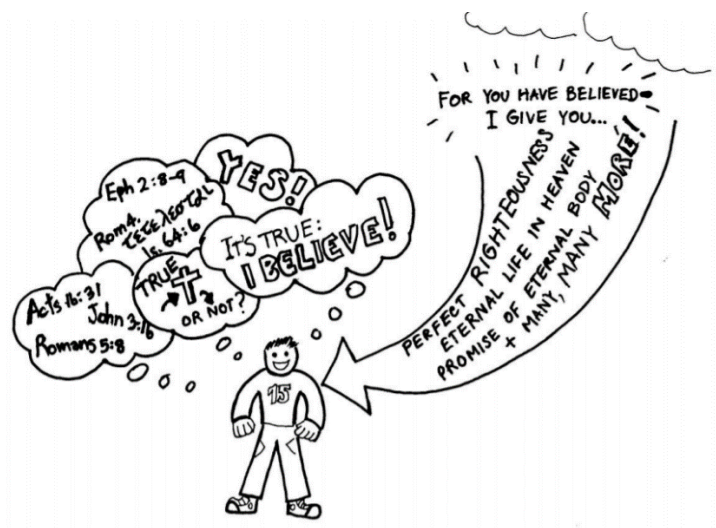 FOR YOU HAVE BELIEVED
I GIVE YOU...
PERFECT RIGHTEOUSNESS
ETERNAL LIFE IN HEAVEN
PROMISE OF ETERNAL BODY
+ MANY, MANY MORE!
YES!
Eph 2:8-9
Rom 4.
τετέλεσται
Is. 64:6
IT'S TRUE:
I BELIEVE!
TRUE
OR NOT?
Acts 16:31
John 3:16
Romans 5:8
75